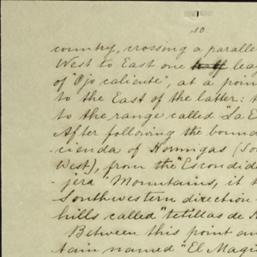 10
country, crossing a paralle
West to East one half lea
of "Ojo caliente", at a poin
to the East of the latter: t
to the range called "La E
After following the boun
cienda of Hormigas (So
West), from the "Escondid
jera" Mountains, it t
Southwestern direction
hills called "tetillas de
Between this point an
tain named "El Magu